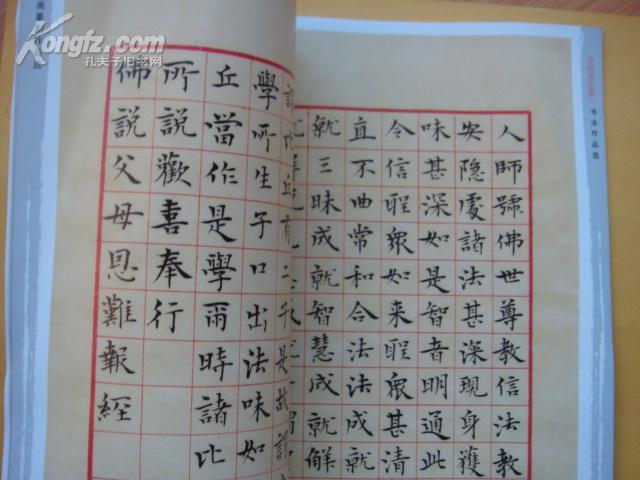 Kongfz.com
孔夫子旧书网
书法作品选
人師號佛世尊教信法教
安隱處諸法甚深現身獲
味甚深如是智者明通此
令信聖眾如来聖眾甚清
直不曲常和合法法成就
就三昧成就智慧成就解
比丘有二子是故
學所生子口出法味如
丘當作是學爾時諸比
所說歡喜奉行
佛說父母恩難報經